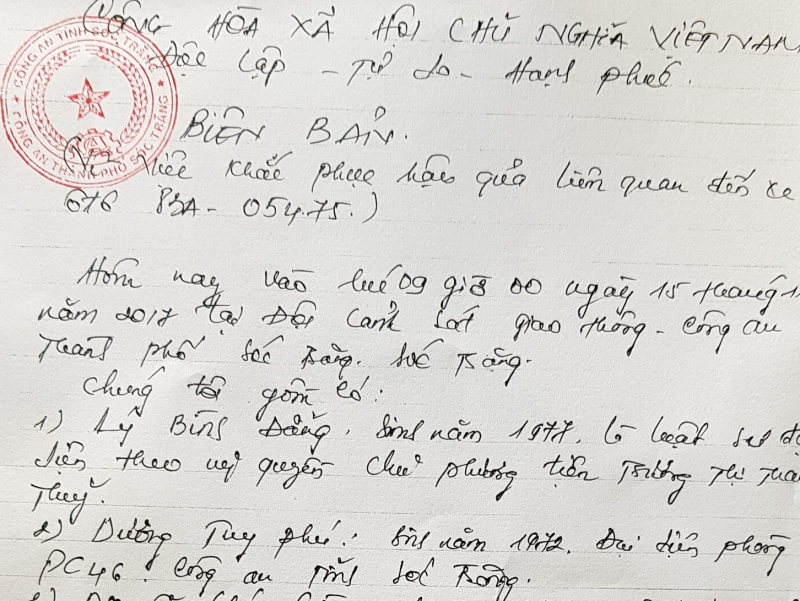 CỘNG HÒA XÃ HỘI CHỦ NGHĨA VIỆT NAM
Độc lập - Tự do - Hạnh phúc.
CÔNG AN TỈNH SÓC TRĂNG
CÔNG AN THÀNH PHỐ SÓC TRĂNG
BIÊN BẢN.
(V/v việc khắc phục hậu quả liên quan đến xe
83A - 054.75.)
Hôm nay vào lúc 09 giờ 00 ngày 15 tháng 1
năm 2017 tại Đội Cảnh sát giao thông - Công an
Thành phố Sóc Trăng. Sóc Trăng.
Chúng tôi gồm có:
1) Lý Bình Đẳng. Sinh năm 1977. là luật sư đại
diện theo uỷ quyền chủ phương tiện Trương Thị Thanh
Thuỷ.
2) Dương Tuy Phú: Sinh năm 1972. Đại diện phòng
PC46. Công an Tỉnh Sóc Trăng.